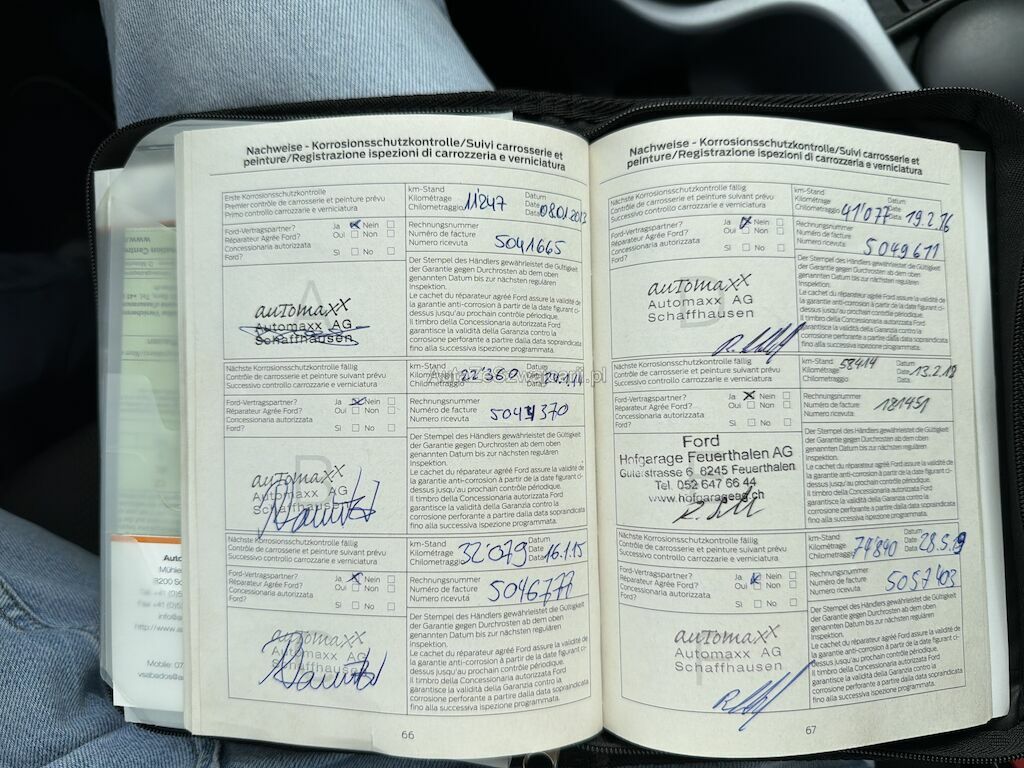 Nachweise - Korrosionsschutzkontrolle/Suivi carrosserie et
peinture/Registrazione ispezioni di carrozzeria e verniciatura
Erste Korrosionsschutzkontrolle
Premier contrôle de carrosserie et peinture prévu
Primo controllo carrozzarie e verniciatura
km-Stand
Kilométrage
Chilometraggio
11'247
Datum
Date
Data
08.01.2013
Ford-Vertragspartner? Ja Nein
Réparateur Agrée Ford? Oui Non
Concessionaria autorizzata
Ford? Si No
Rechnungsnummer
Numéro de facture
Numero ricevuta
5041665
A
automaxx
Automaxx AG
Schaffhausen
Der Stempel des Händlers gewährleistet die Gültigkeit
der Garantie gegen Durchrosten ab dem oben
genannten Datum bis zur nächsten regulären
Inspektion.
Le cachet du réparateur agréé Ford assure la validité de
la garantie anti-corrosion à partir de la date figurant ci-
dessus jusqu'au prochain contrôle périodique.
Il timbro della Concessionaria autorizzata Ford
garantisce la validità della Garanzia contro la
corrosione perforante a partire dalla data sopraindicata
fino alla successiva ispezione programmata.
Nächste Korrosionsschutzkontrolle fällig
Contrôle de carrosserie et peinture suivant prévu
Successivo controllo carrozzarie e verniciatura
km-Stand
Kilométrage
Chilometraggio
22'360
Datum
Date
Data
Ford-Vertragspartner? Ja Nein
Réparateur Agrée Ford? Oui Non
Concessionaria autorizzata
Ford? Si No
Rechnungsnummer
Numéro de facture
Numero ricevuta
B
automaxx
Automaxx AG
Schaffhausen
Der Stempel des Händlers gewährleistet die Gültigkeit
der Garantie gegen Durchrosten ab dem oben
genannten Datum bis zur nächsten regulären
Inspektion.
Le cachet du réparateur agréé Ford assure la validité de
la garantie anti-corrosion à partir de la date figurant ci-
dessus jusqu'au prochain contrôle périodique.
Il timbro della Concessionaria autorizzata Ford
garantisce la validità della Garanzia contro la
corrosione perforante a partire dalla data sopraindicata
fino alla successiva ispezione programmata.
Nächste Korrosionsschutzkontrolle fällig
Contrôle de carrosserie et peinture suivant prévu
Successivo controllo carrozzarie e verniciatura
km-Stand
Kilométrage
Chilometraggio
32'079
Datum
Date
Data
16.1.15
Ford-Vertragspartner? Ja Nein
Réparateur Agrée Ford? Oui Non
Concessionaria autorizzata
Ford? Si No
Rechnungsnummer
Numéro de facture
Numero ricevuta
5046777
automaxx
Automaxx AG
Schaffhausen
Der Stempel des Händlers gewährleistet die Gültigkeit
der Garantie gegen Durchrosten ab dem oben
genannten Datum bis zur nächsten regulären
Inspektion.
Le cachet du réparateur agréé Ford assure la validité de
la garantie anti-corrosion à partir de la date figurant ci-
dessus jusqu'au prochain contrôle périodique.
Il timbro della Concessionaria autorizzata Ford
garantisce la validità della Garanzia contro la
corrosione perforante a partire dalla data sopraindicata
fino alla successiva ispezione programmata.
66
Nachweise - Korrosionsschutzkontrolle/Suivi carrosserie et
peinture/Registrazione ispezioni di carrozzeria e verniciatura
Nächste Korrosionsschutzkontrolle fällig
Contrôle de carrosserie et peinture suivant prévu
Successivo controllo carrozzarie e verniciatura
km-Stand
Kilométrage
Chilometraggio
41'077
Datum
Date
Data
19.2.16
Ford-Vertragspartner? Ja Nein
Réparateur Agrée Ford? Oui Non
Concessionaria autorizzata
Ford? Si No
Rechnungsnummer
Numéro de facture
Numero ricevuta
5049671
D
automaxx
Automaxx AG
Schaffhausen
Der Stempel des Händlers gewährleistet die Gültigkeit
der Garantie gegen Durchrosten ab dem oben
genannten Datum bis zur nächsten regulären
Inspektion.
Le cachet du réparateur agréé Ford assure la validité de
la garantie anti-corrosion à partir de la date figurant ci-
dessus jusqu'au prochain contrôle périodique.
Il timbro della Concessionaria autorizzata Ford
garantisce la validità della Garanzia contro la
corrosione perforante a partire dalla data sopraindicata
fino alla successiva ispezione programmata.
Nächste Korrosionsschutzkontrolle fällig
Contrôle de carrosserie et peinture suivant prévu
Successivo controllo carrozzarie e verniciatura
km-Stand
Kilométrage
Chilometraggio
58414
Datum
Date
Data
13.2.18
Ford-Vertragspartner? Ja Nein
Réparateur Agrée Ford? Oui Non
Concessionaria autorizzata
Ford? Si No
Rechnungsnummer
Numéro de facture
Numero ricevuta
181451
Ford
Hofgarage Feuerthalen AG
8245 Feuerthalen
Tel. 052 647 66 44
www.hofgarageag.ch
Der Stempel des Händlers gewährleistet die Gültigkeit
der Garantie gegen Durchrosten ab dem oben
genannten Datum bis zur nächsten regulären
Inspektion.
Le cachet du réparateur agréé Ford assure la validité de
la garantie anti-corrosion à partir de la date figurant ci-
dessus jusqu'au prochain contrôle périodique.
Il timbro della Concessionaria autorizzata Ford
garantisce la validità della Garanzia contro la
corrosione perforante a partire dalla data sopraindicata
fino alla successiva ispezione programmata.
Nächste Korrosionsschutzkontrolle fällig
Contrôle de carrosserie et peinture suivant prévu
Successivo controllo carrozzarie e verniciatura
km-Stand
Kilométrage
Chilometraggio
74'890
Datum
Date
Data
28.5.19
Ford-Vertragspartner? Ja Nein
Réparateur Agrée Ford? Oui Non
Concessionaria autorizzata
Ford? Si No
Rechnungsnummer
Numéro de facture
Numero ricevuta
5057403
automaxx
Automaxx AG
Schaffhausen
Der Stempel des Händlers gewährleistet die Gültigkeit
der Garantie gegen Durchrosten ab dem oben
genannten Datum bis zur nächsten regulären
Inspektion.
Le cachet du réparateur agréé Ford assure la validité de
la garantie anti-corrosion à partir de la date figurant ci-
dessus jusqu'au prochain contrôle périodique.
Il timbro della Concessionaria autorizzata Ford
garantisce la validità della Garanzia contro la
corrosione perforante a partire dalla data sopraindicata
fino alla successiva ispezione programmata.
67
http://www.a
Mobile: 07